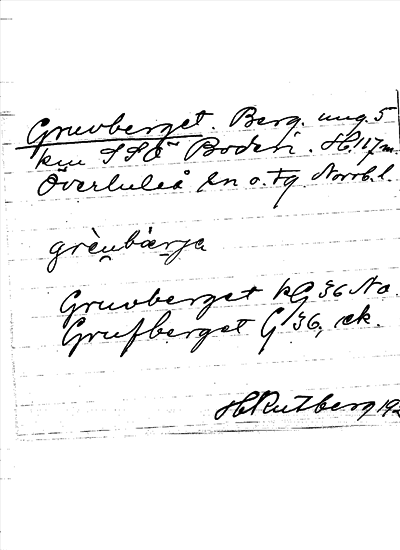 Gruvberget. Berg. ung. 5
km SSÖ Boden. H. 117 m.
Överluleå sn o. tg Norrb. l.
grèṷbær̭ja
Gruvberget kG 36 No.
Grufberget G 36, ek.
H Rutberg 19